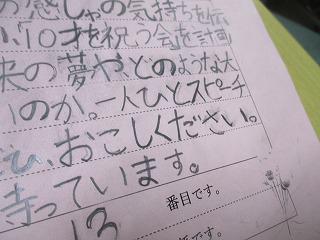 の感しゃの気持ちを伝
い、「10才を祝う会」を計画
来の夢やどのような大
のか。一人ひとスピーチ
ひ、おこしください。
待っています。
番目です。
13